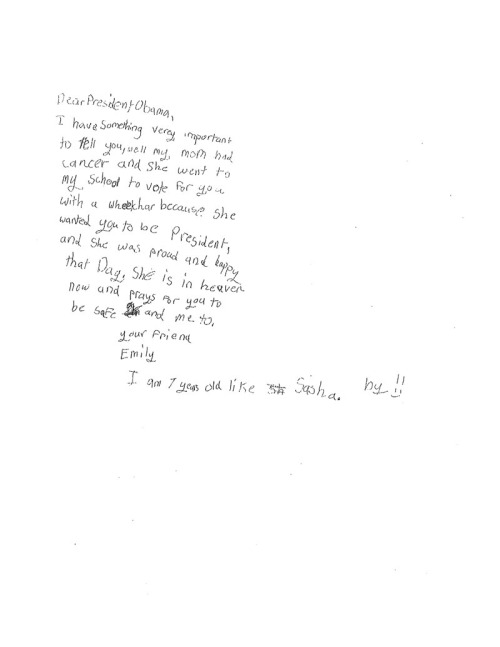 Dear President Obama,
I have something verey important
to tell you, well my, mom had
cancer and she went to
my school to vote for you
with a wheelchar because she
wanted you to be President,
and she was proud and happy
that Day, She is in heaven
now and prays for you to
be safe and me to.
your Friend
Emily
I am 7 years old like Sasha. hy !!